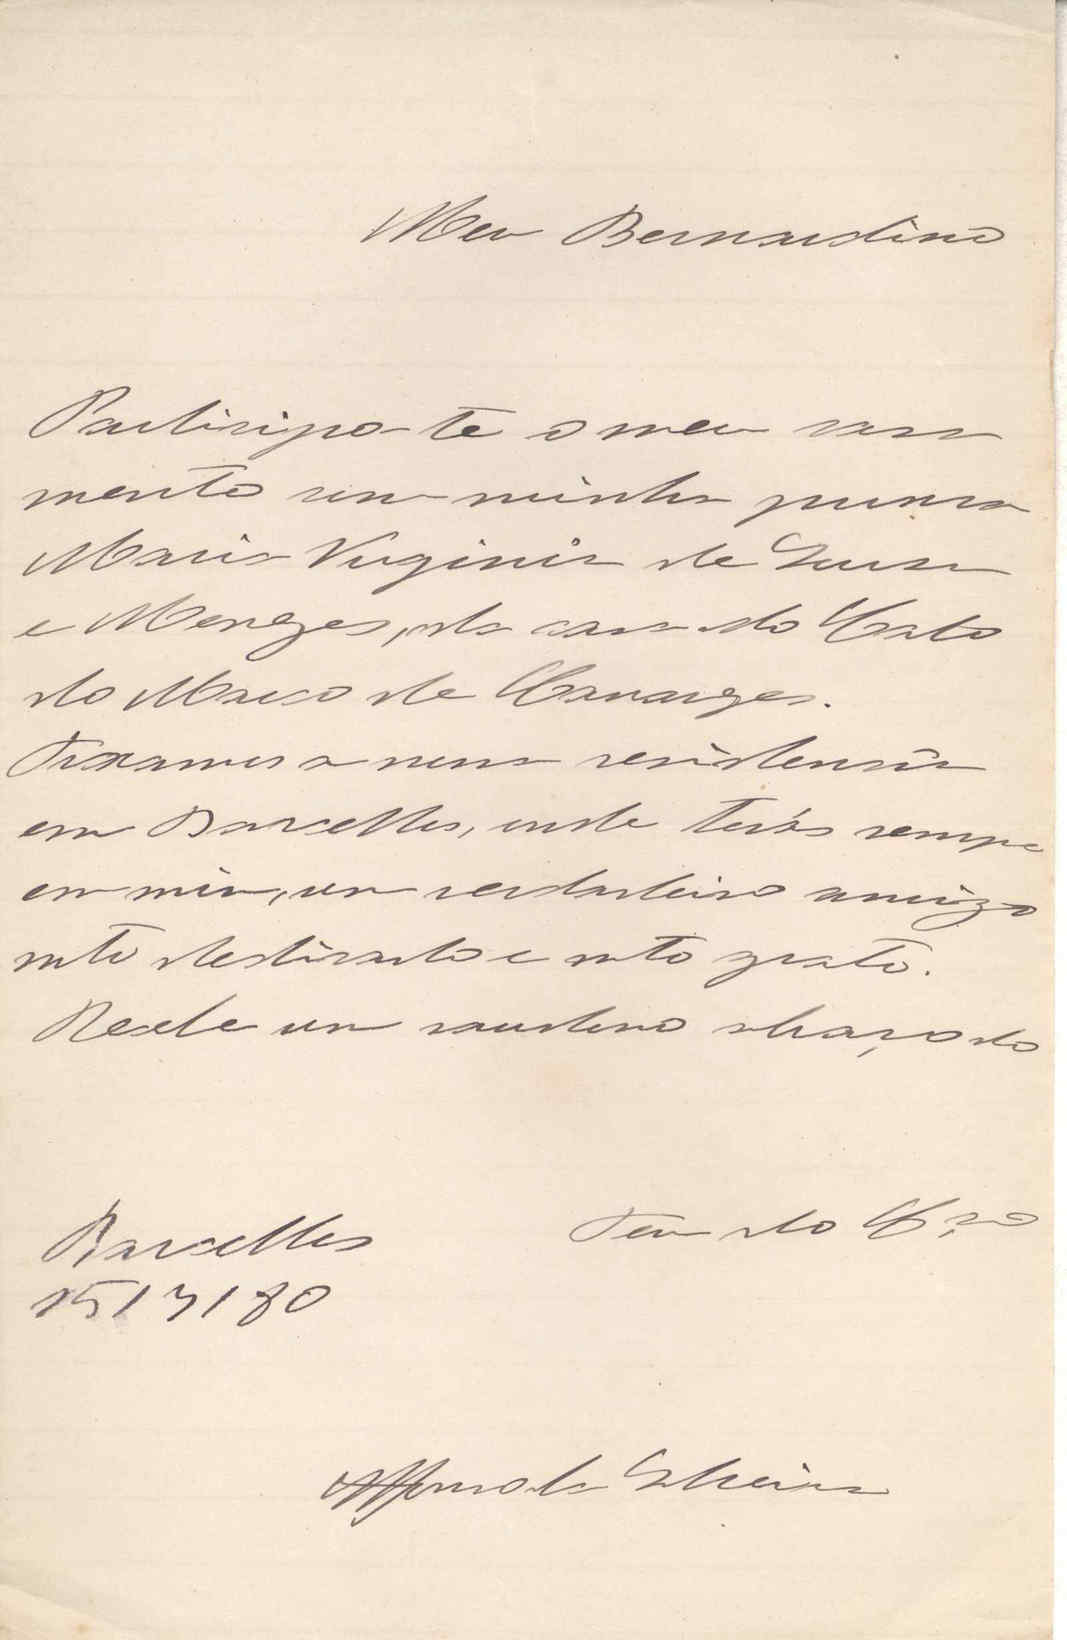 Meu Bernardino
Participo-te o meu casa
mento com minha prima
Maria Virginia de Sousa
e Menezes, da casa do
do Marco de Canavezes.
Fixamos a nossa residencia
em Barcellos, onde terás sempre
em mim, um verdadeiro amigo
mto dedicado e mto grato.
Recebe um saudoso abraço do
Teu do C.ção
Barcellos
15/7/80
Affonso